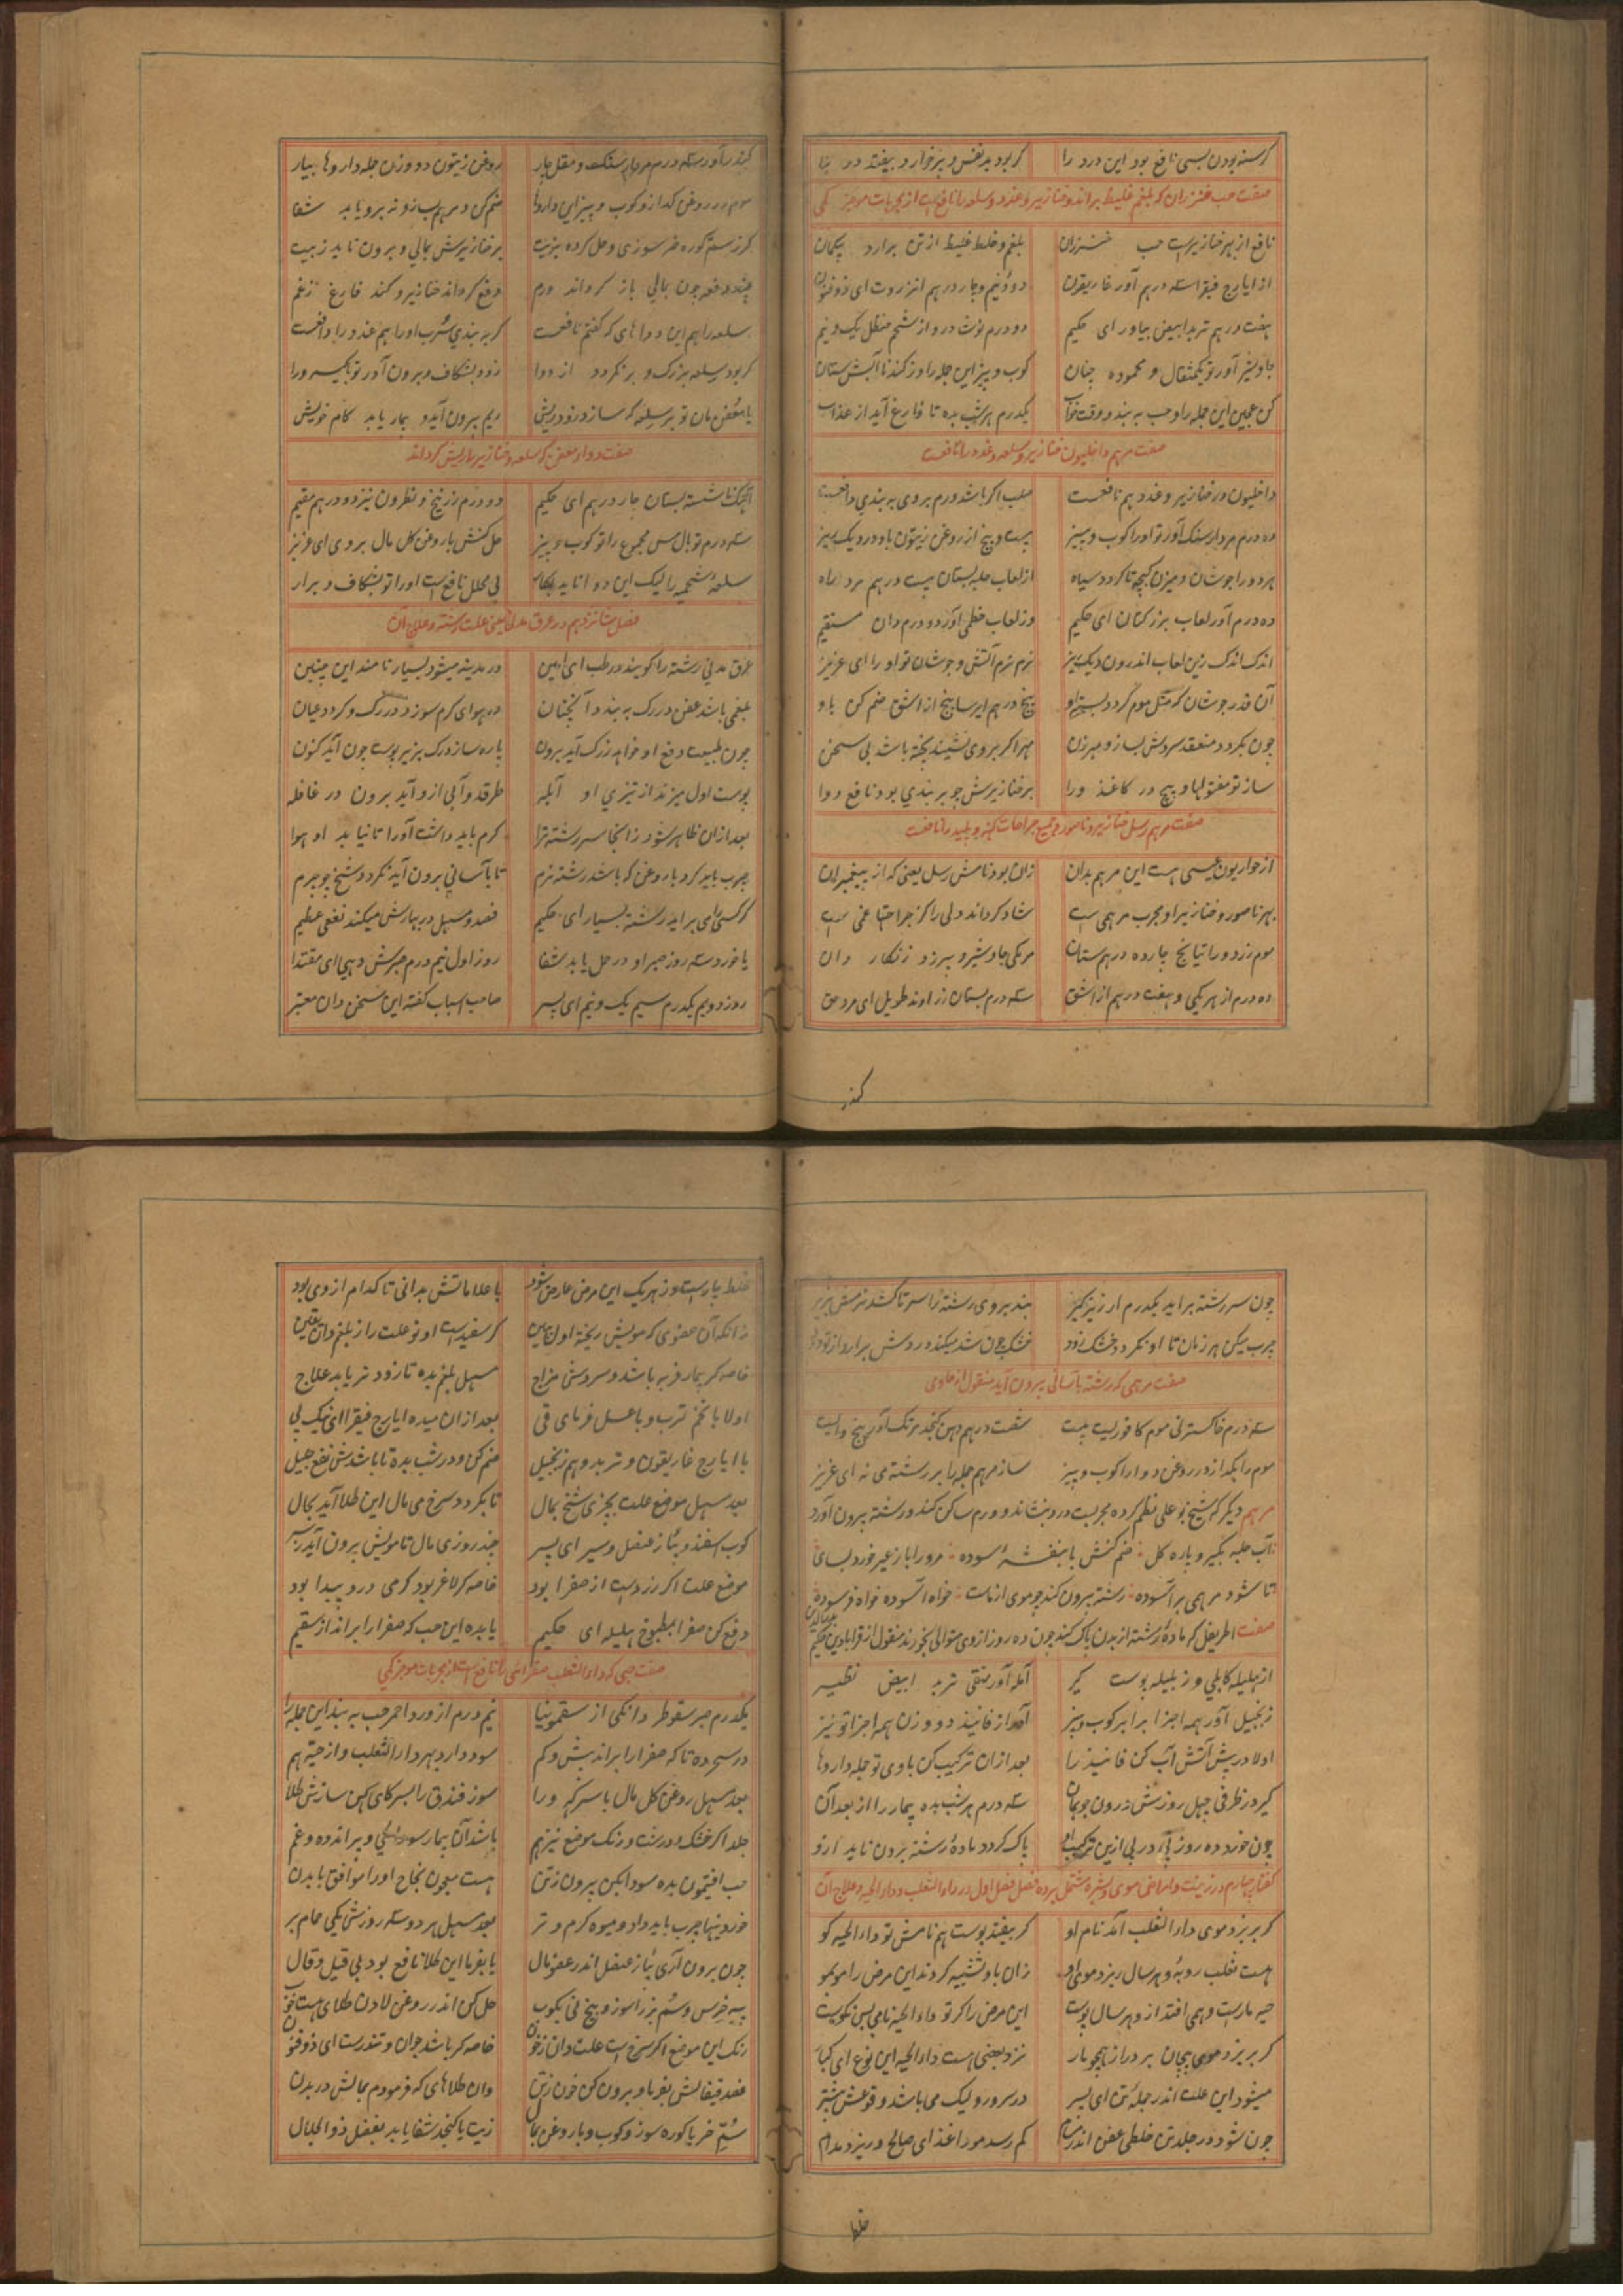 کرسنه بودن بسی نافع بود این درد را کر بود بدنفس و پرخوار و بیفتد در بلا
صفت حب خنزران که بلغم غلیظ براند و خنازیر و غدد و سلعه را نافع است از مجربات موجز کی
نافع از بهر خنازیرست حب خنزران بلغم و خلط غلیظ از تن برارد بیکمان
از ایارج فیقرا سه درهم آور غاریقون دو و نیم و چار درهم انزروت ای ذوفنون
هفت درهم تربد ابیض بیاور ای حکیم دو درم نوشادر و از شحم حنظل یک و نیم
جاوشیر آور تو یکمثقال و محموده چنان کوب و بیز این جمله را وز کندنا آبش ستان
کن عجین این جمله را و حب به بند و وقت خواب یکدرم هر شب بده تا فارغ آید از عذاب
صفت مرهم داخلیون خنازیر و سلعه و غدد را نافعست
داخلیون در خنازیر و غدد هم نافعست صلب اکر باشد ورم بر وی به بندی دافعست
ده درم مردارسنک آور تو او را کوب و بیز بیست و پنج از روغن زیتون با او در دیک ریز
هردو را جوشان و میزن کفچه تا کردد سیاه از لعاب حلبه بستان بیست درهم مرد راه
ده درم آور لعاب بزر کتان ای حکیم وز لعاب خطمی آور ده درم دان مستقیم
اندک اندک زین لعاب اندرون دیک ریز نرم نرم آتش و جوشان تو او را ای عزیز
آن قدر جوشان که مثل موم کردد بسته او پنج درهم ایرسا پنج از اشق ضم کن با او
چون بکردد منعقد سردش بساز و میرزن مر اکر بروی نشیند پخته باشد بی سخن
ساز تو مفتولها و پیچ در کاغذ ورا بر خنازیرش چو بر بندی بود نافع دوا
صفت مرهم رسل خنازیر و ناصور و جمیع جراحات کهنه و پلید را نافعست
از حواریون عیسی هست این مرهم بدان زان بود نامش رسل یعنی که از پیغمبران
بهر ناصور و خنازیر او مجرب مرهمی است شاد کرداند دلی را کز جراحتها غمی است
موم زرد و راتیانج چار ده درهم ستان مر مکی جاوشیر و بیرزد زنکار دان
ده درم از هر یکی و هفت درهم از اشق سه درم بستان زراوند طویل ای مرد حق
کندر
کندر آور سه درم مردارسنک و مقل چار روغن زیتون دو وزن جمله داروها بیار
موم در روغن کداز و کوب و بیز این داروها ضم کن و مرهم بساز و نه برو یابد شفا
کر ز ستم کوره خر سوزی و حل کرده بزیت بر خنازیرش بمالی و برون ناید ز بیت
چند دفعه چون بمالی باز کرداند ورم دفع کرداند خنازیر و کند فارغ ز غم
سلعه را هم این دواهای که کفتم نافعست کر به بندی سُرب او را هم غدد را دافعست
کر بود سلعه بزرک و بر نکردد از دوا زود بشکاف و برون آور تو یکسر ورا
یا معفن مان تو بر سلعه که سازد زود ریش ریم بیرون آید و بیمار یابد کام خویش
صفت دواء معفن که سلعه و خنازیر را ریش کرداند
آهک ناشسته بستان چار درهم ای حکیم دو درم زرنیخ و نطرون نیز دو درهم مقیم
سه درم توبال مس مجموع را تو کوب و بیز حل کنش با روغن کل مال بر وی ای عزیز
سلعهٔ شحمیه را لیک این دوا ناید بکار بی محلل نافع است او را تو بشکاف و برار
فصل شانزدهم در عرق مدنی یعنی علت رشته و علاج آن
عرق مدنی رشته را کویند در طب ای امین در مدینه میشود بسیار نامند این چنین
بلغمی باشد عفن در رک به بند و آنچنان در هوای کرم سوزد در رک و کردد عیان
چون طبیعت دفع او خواهد ز رک آید برون پاره سازد رک بزیر پوست چون آید کنون
پوست اول میزند از تیزی او آبله طرقد و آبی ازو آید برون در غافله
بعد ازان ظاهر شود زانجا سر رشته ترا کرم باید داشت آن را تا نیابد او هوا
چرب باید کرد با روغن که باشد رشته نرم تا بآسانی برون آید نکردد شخ چو چرم
کر کسی را می براید رشته بسیار ای حکیم فصد و مسهل در بهارش میکند نفع عظیم
یا خورد سه روز صبر او در عمل یابد شفا روز اول نیم درم صبرش دهی ای مقتدا
روز دویم یکدرم سیم یک و نیم ای پسر صاحب اسباب کفته این سخن دان معتبر
چون سر رشته براید یکدرم ارزیز کیر بند بر وی رشته را سر تا کشد نرمش بزیر
چرب میکن هر زمان تا او نکردد خشک زود خشک چون شد میکند دردش برار و از تو دود
صفت مرهمی که رشته بآسانی بیرون آید منقول از حاوی
سه درم خاکستر نی موم کافوریست بیست شصت درهم دهن کنجد مرتک آور پنج و ایست
موم را بکداز در روغن دوا را کوب و بیز ساز مرهم جمله را بر رشته می نه ای عزیز
مرهم دیکر که شیخ بو علی نظم کرده مجربست درد بنشاند و ورم ساکن کند و رشته بیرون آورد
آب حلبه بکیر و پاره کل ضم کنش با بنفشهٔ سوده مرو را باز عیر خورد بسای
تا شود مرهمی بر آسوده رشته بیرون کند چو موی از ماست خواه آسوده خواه فرسوده
صفت اطریفل که مادهٔ رشته از بدن پاک کند چون ده روز ازوی متوالی بخورند منقول از قرابادین حکیم
از هلیله کابلی وز بلیله پوست کیر آمله آور منقی تربد ابیض نظیر
زنجبیل آور همه اجزا برابر کوب و بیز آور از فانیذ دو وزن همه اجزا تو نیز
اولا در پیش آتش آب کن فانیذ را بعد ازان ترکیب کن با وی تو جمله داروها
کیر در ظرفی چهل روزش درون جو بمان سه درم هر شب بده بیمار را از بعد آن
چون خورد ده روز پی در پی ازین ترکیب او پاک کردد مادهٔ رشته برون ناید ازو
کفتار چهارم در زینت و امراض موی و بشره مشتمل بر ده فصل فصل اول در داء الثعلب و داء الحیه و علاج آن
کر بریزد موی داء الثعلب آمد نام او کر بیفتد پوست هم نامش تو داء الحیه کو
هست ثعلب روبه و هر سال ریزد موی او زان باو تشبیه کردند این مرض را مو بمو
حیه مارست و همی افتد ازو هر سال پوست این مرض را کر تو داء الحیه نامی بس نکوست
کر بریزد موی پیچان بر دراز همچو مار نزد بعضی هست داء الحیه این نوع ای کبار
میشود این علت اندر جملهٔ تن ای پسر در سر و رو لیک می باشد وقوعش بیشتر
چون شود در جلد تن خلطی عفن اندر مسام کم رسد مو را غذای صالح و ریزد مدام
خلط
خلط چارست و ز هر یک این مرض عارض شود با علاماتش بدانی تا کدام از وی بود
زانکه آن عضوی که مویش ریخته اول ببین کر سفیدست او تو علت را ز بلغم دان یقین
خاصه کر بیمار فربه باشد و سردش مزاج مسهل بلغم بده تا زود تر یابد علاج
اولا با تخم ترب و با عسل فرمای قی بعد ازان میده ایارج فیقرا ای نیک پی
با ایارج غاریقون و تربد و هم زنجبیل ضم کن و در شب بده تا باشدش نفع جمیل
بعد مسهل موضع علت بچیزی شخ بمال تا بکردد سرخ می مال این طلا آید بحال
کوب اسفند و پیاز عنصل و سیر ای پسر چند روزی مال تا مویش برون آید ز سر
موضع علت اکر زردست از صفرا بود خاصه کر لاغر بود کرمی درو پیدا بود
دفع کن صفرا بمطبوخ هلیله ای حکیم یا بده این حب که صفرا را براند از سقیم
صفت حبی که داء الثعلب صفراوی را نافع است از مجربات موجز کی
یکدرم صبر سقوطر دانکی از سقمونیا نیم درم از ورد احمر حب به بند این جمله را
در سحر ده تا که صفرا را براند بیش و کم سود دارد بهر داء الثعلب و از حیه هم
بعد مسهل روغن کل مال با سرکه ورا سوز فندق را بسرکای کهن سازش طلا
جلد اکر خشک و درشت و رنک موضع نیز هم باشد آن بیمار سوداوی و پر انده و غم
حب افتیمون بده سودا بکن بیرون ز تن هست معجون نجاح او را موافق با بدن
خوردنیها چرب باید داد و میوه کرم و تر بعد مسهل هر دو سه روزش یکی حمام بر
چون برون آری پیاز عنصل اندر عضو مال یا بفرما این طلا نافع بود بی قیل و قال
پیه خرس و سُم بز را سوز و بیخ نی بکوب حل کن اندر روغن لادن طلای هست خوب
رنک این موضع اکر سرخ است علت دان ز خون خاصه کر باشد جوان و تندرست ای ذوفنون
فصد قیفالش بفرما و برون کن خون ز تن وان طلاهای که فرمودم بمالش در بدن
سُمّ خر با کوره سوز و کوب و با روغن بمال زیت یا کنجد شفا یابد بفضل ذوالجلال